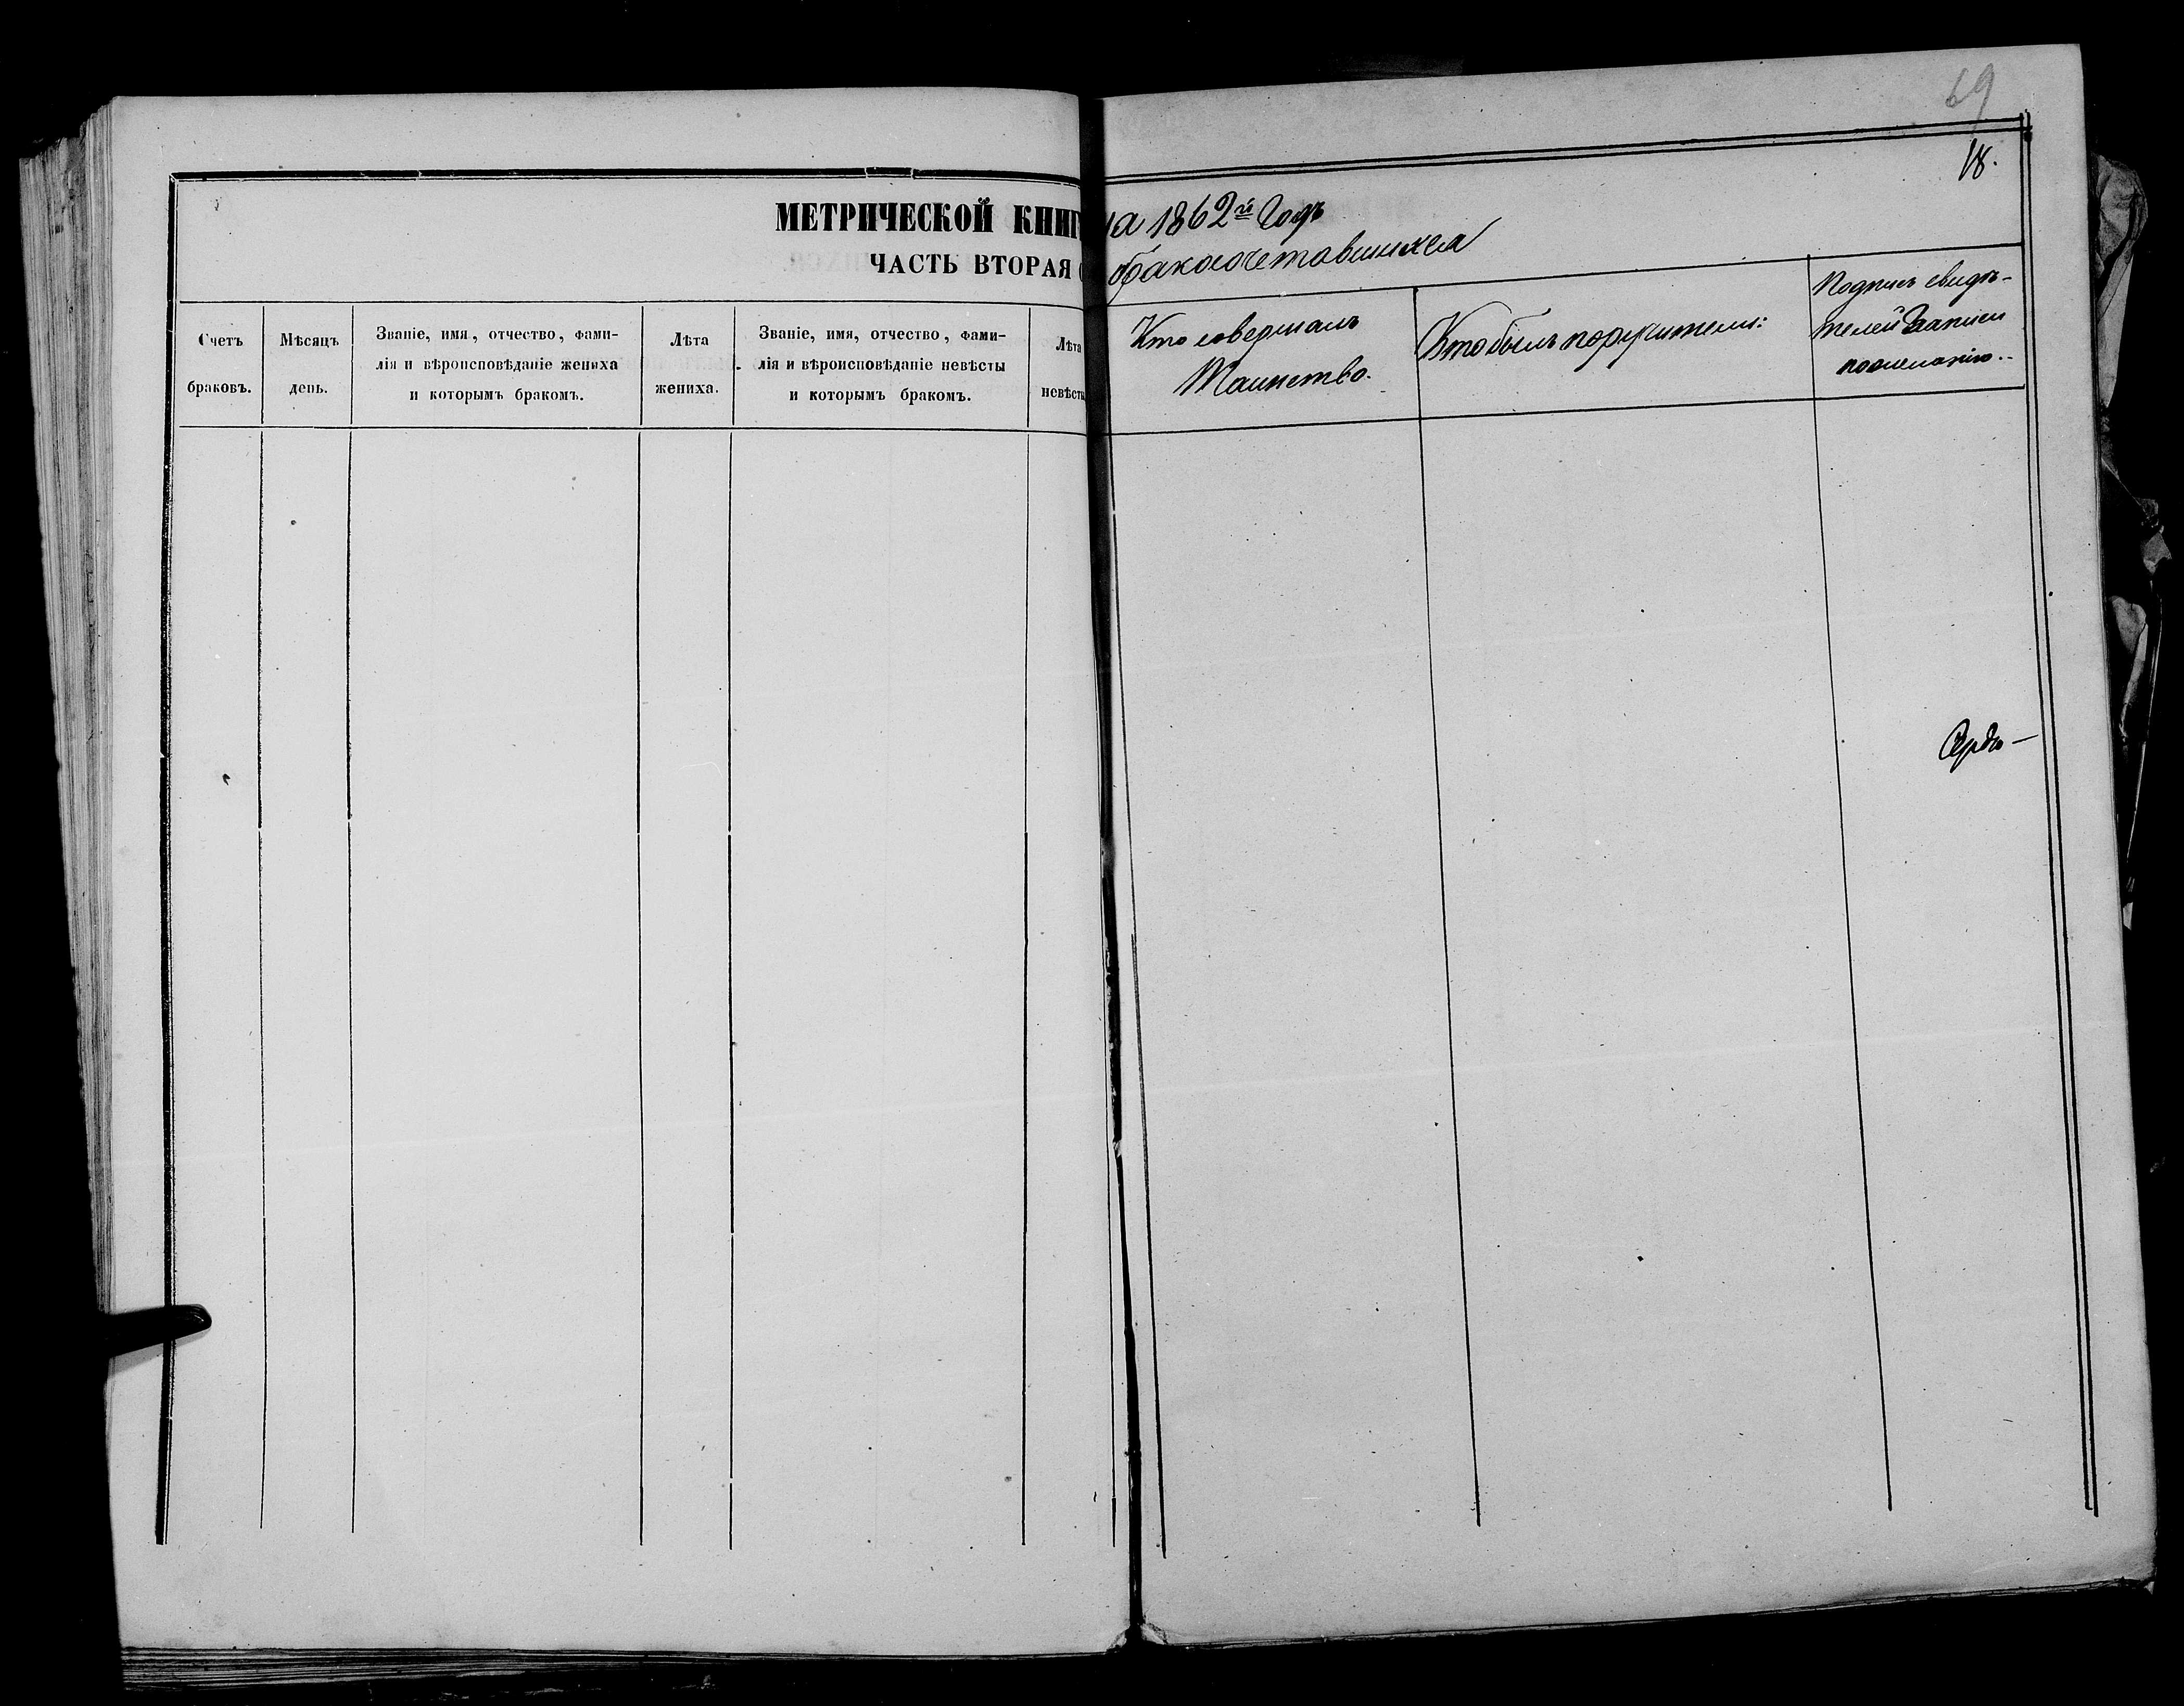 69
18.
МЕТРИЧЕСКОЙ КНИГ на 1862й Годъ
ЧАСТЬ ВТОРАЯ бракосочетавшихся
Счетъ
браковъ.
Мѣсяцъ
день.
Званіе, имя, отчество, фами-
лія и вѣроисповѣданіе жениха
и которымъ бракомъ.
Лѣта
жениха.
Званіе, имя, отчество, фами-
лія и вѣроисповѣданіе невѣсты
и которымъ бракомъ.
Лѣта
невѣсты
Кто совершалъ
Таинство.
Кто былъ поручители:
Подпись свидѣ-
телей записи
по желанію.